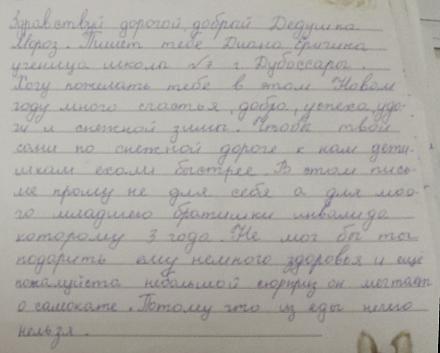 Здравствуй дорогой, добрый Дедушка
Мороз. Пишет тебе Диана
ученица школа №7 г Дубоссары.
Хочу пожелать тебе в этом Новом
году много счастья, добра, успеха, уда-
чи и снежной зимы. Чтобы твои
сани по снежной дороге к нам дети-
шкам ехали быстрее. В этом пись-
ме прошу не для себя а для мое-
го младшего братишки инвалида
которому 3 года. Не мог бы ты
подарить ему немного здоровья и ещё
пожалуйста небольшой сюрприз он мечтает
о самокате. Потому что из еды ничего
нельзя.